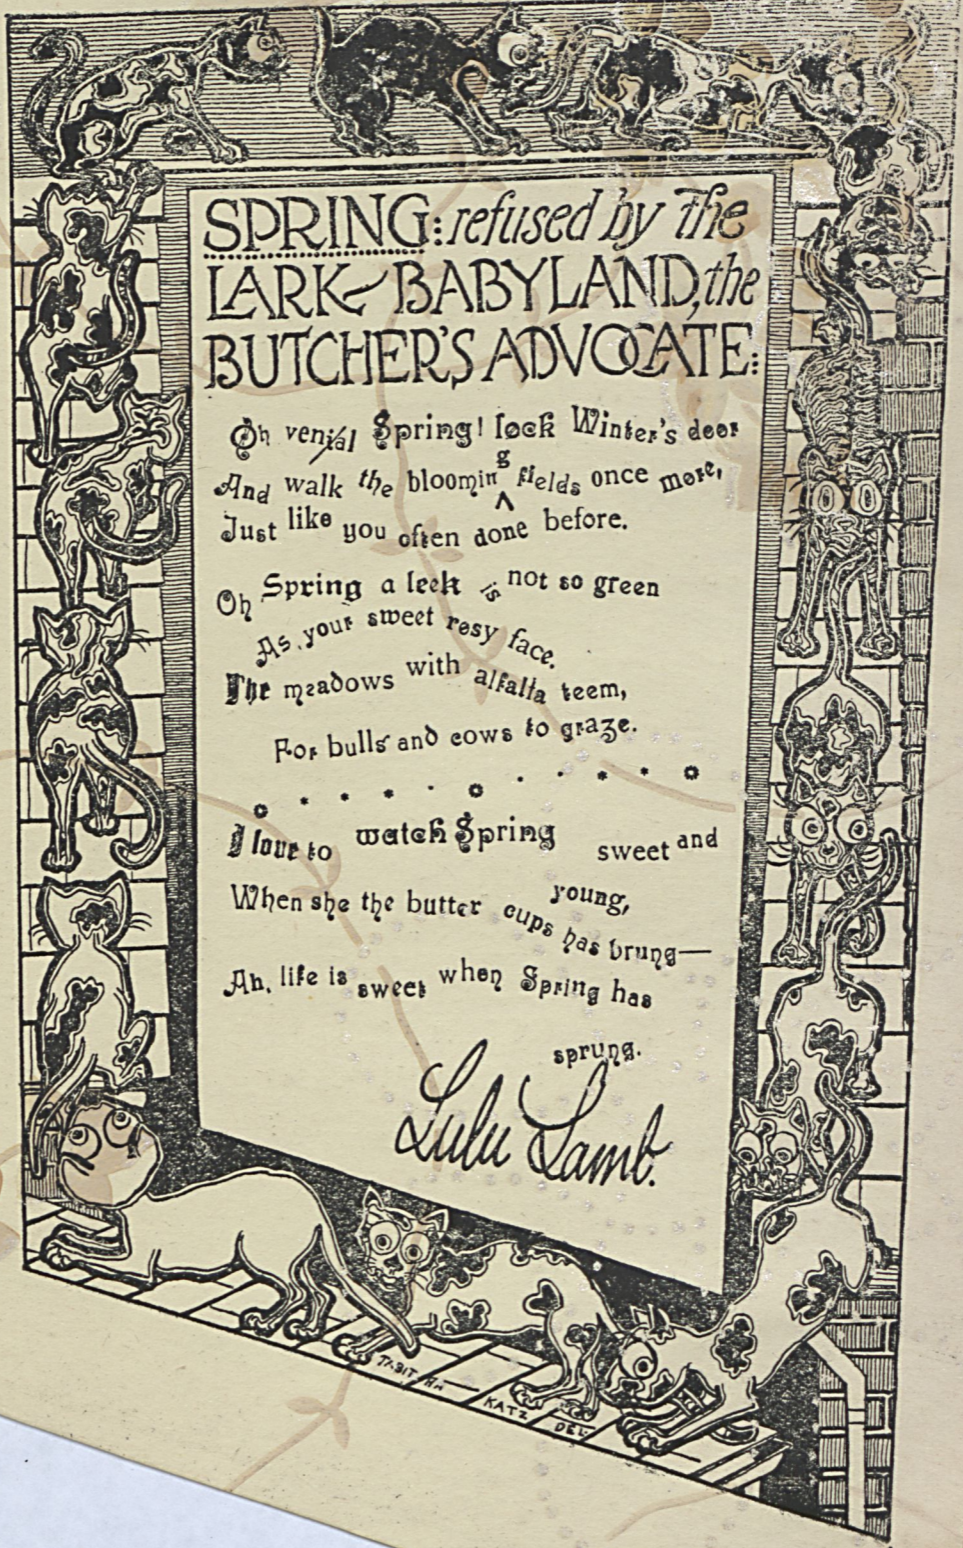 SPRING: refused by the
LARK - BABYLAND, the
BUTCHER'S ADVOCATE:
Oh venial Spring! lock Winter's door
g
And walk the bloomin fields once more,
Just like you often done before.
Oh Spring a leek is not so green
As your sweet rosy face.
The meadows with alfalfa teem,
For bulls and cows to graze.
I love to watch Spring sweet and
young,
When she the butter cups has brung—
Ah, life is sweet when Spring has
sprung.
Lulu Lamb.
TABITHA
KATZ
DEL